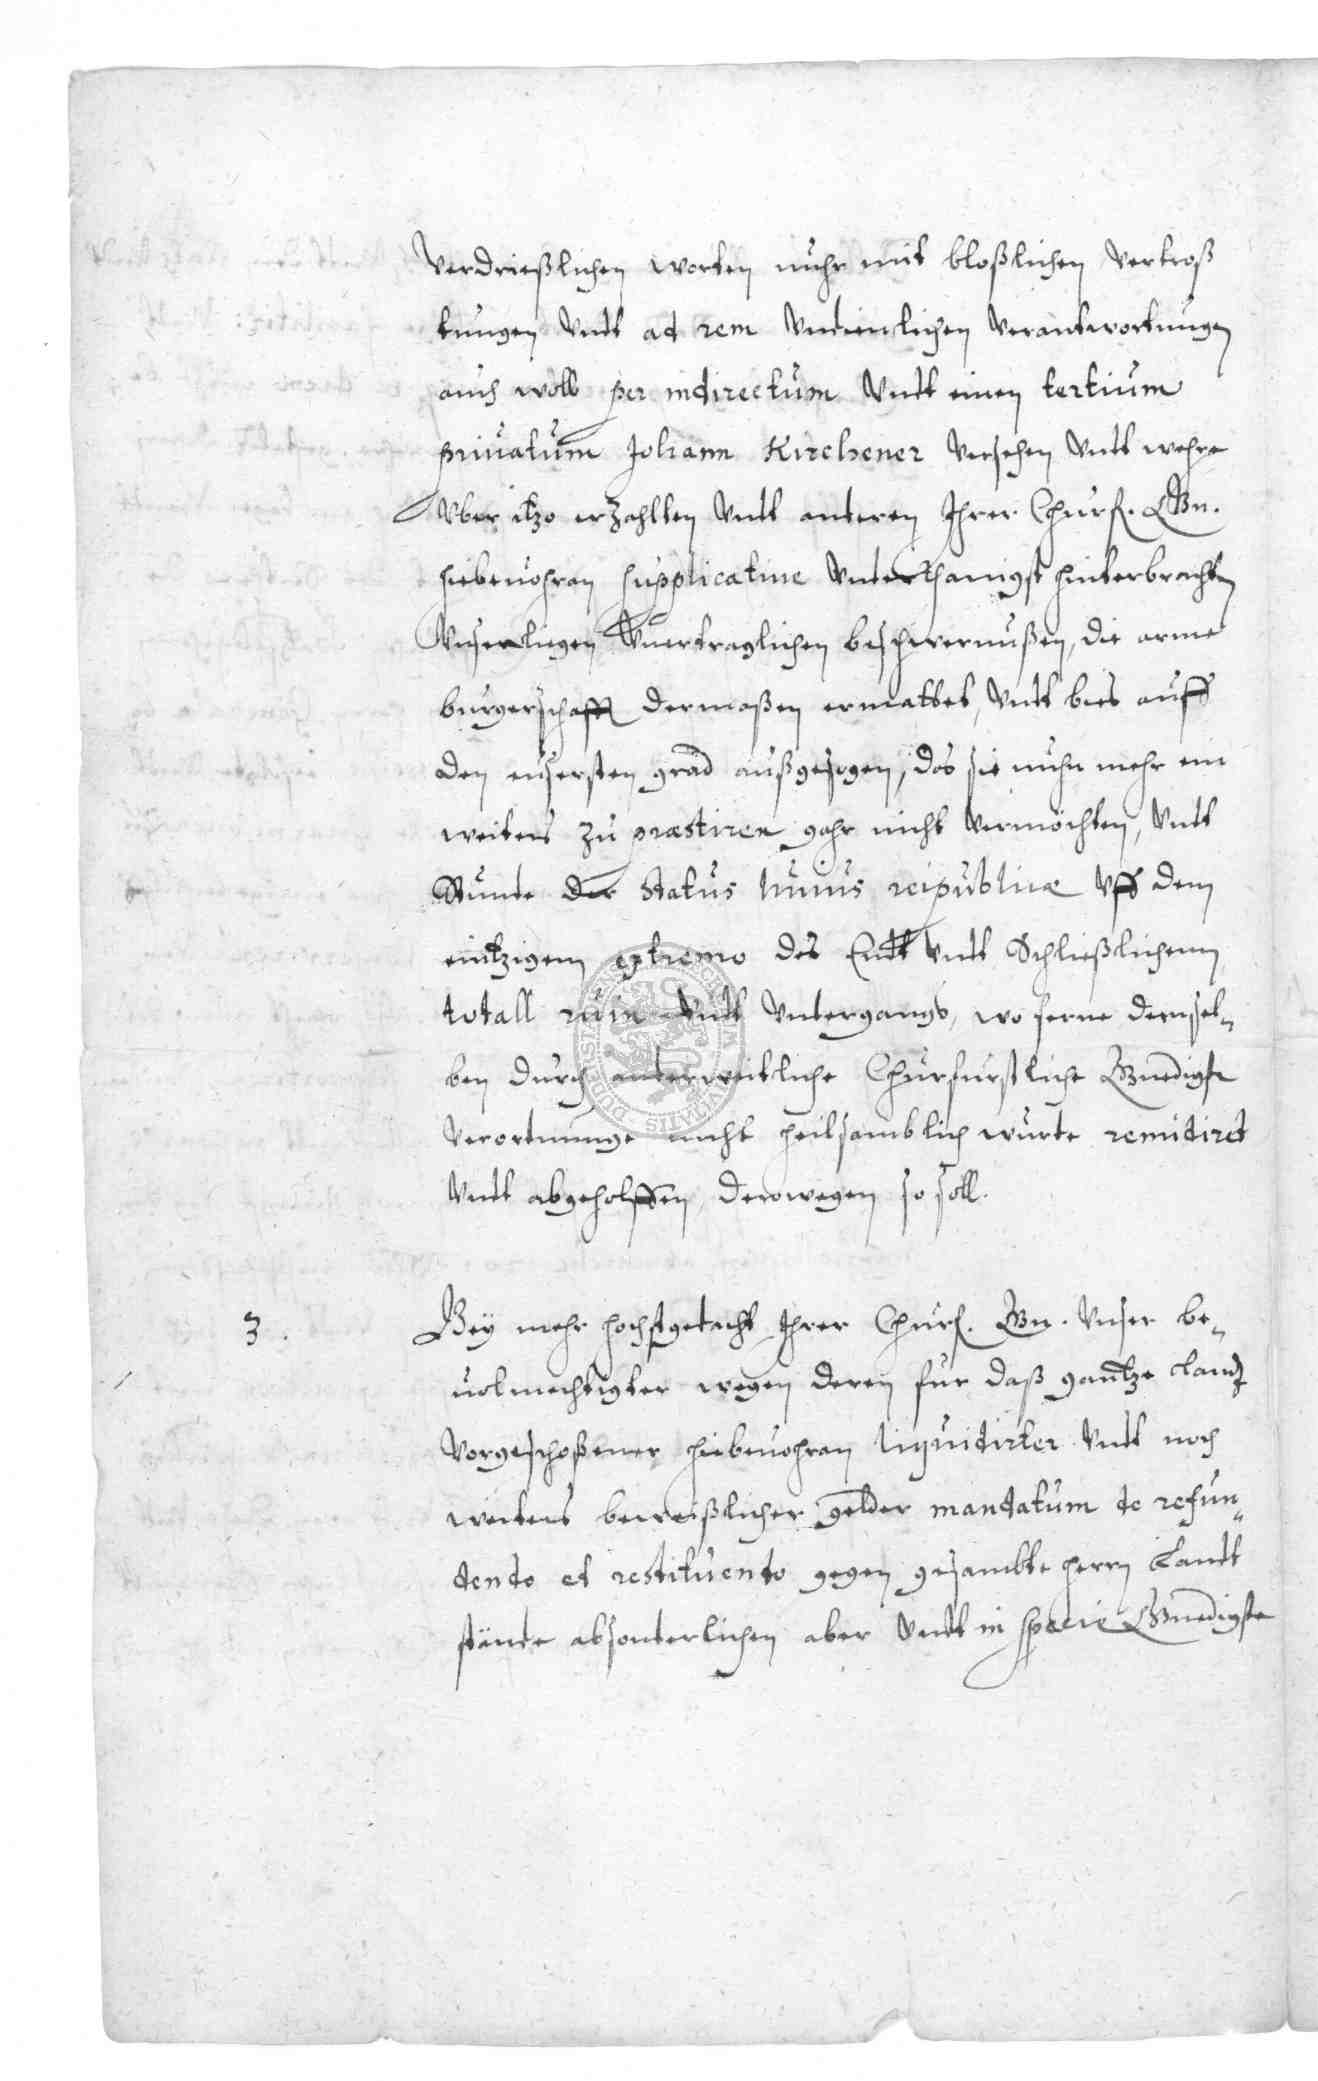 verdrießlichen worten nuhr mit bloßlichen vertroß
tungen vndt ad rem vndienlichen verantwortungen
auch woll per indirectum vndt einen tertium
priuatum Johann Kirchener versehen vndt wehre
vber itzo erzahlten vndt anderen Ihrer Churf. Gn.
hiebeuohran supplicatiue vnterthanigst hinterbrachten
vnserligen vnertraglichen beschwernußen, die arme
burgerschafft dermaßen ermattet, vndt bies auff
den eusersten grad außgesogen, das sie nuhn mehr ein
weiters zu præstiren gahr nicht vermöchten, vndt
stunde der Status huius reipublicæ vff dem
eintzigem extremo des Endt vndt Schließlichenn
totall ruin vndt vntergangs, wo ferne demsel-
ben durch anderweitliche Churfurstliche Gnedigste
verordnunge nicht heilsamblich wurde remidiret
vndt abgeholffen, derowegen so soll.
3. Bey mehr hochstgedacht Ihrer Churf. Gn. vnser be-
uolmechtigter wegen deren fur daß gantze Landt
vorgeschoßener hiebeuohran liquidirter vndt noch
weiters beweißlicher gelder mandatum de refun-
dendo et restituendo gegen gesambte herrn Landt
stände absonderlichen aber vndt in specie Gnedigste